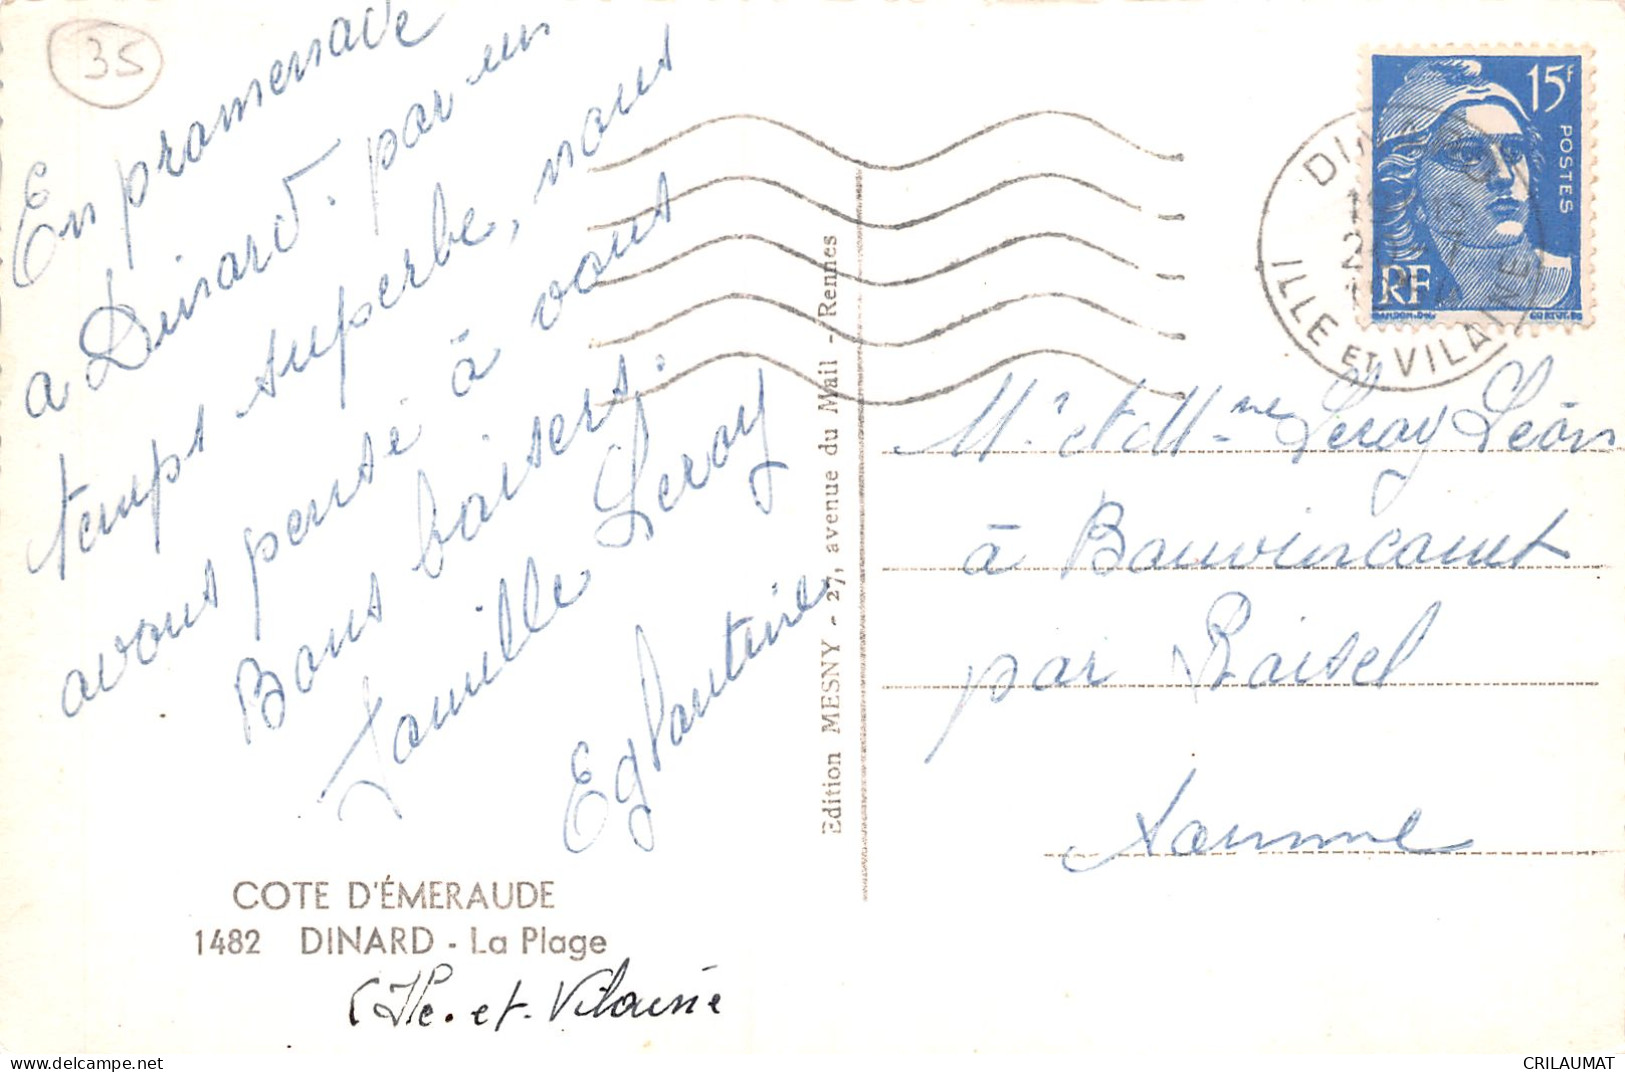 35
En promenade
a Dinard. par un
temps superbe, nous
avons pensé à vous
Bons baisers.
Famille Leroy
Eglantine
COTE D'ÉMERAUDE
1482 DINARD - La Plage
(Ille-et-Vilaine
Edition MESNY - 27, avenue du Mail - Rennes
15F
POSTES
RF
GANDON.DEL
CORTOT.SC
DINARD
ILLE ET VILAINE
Mr et Mme Leroy Léon
à
par Raisel
Somme
CRILAUMAT